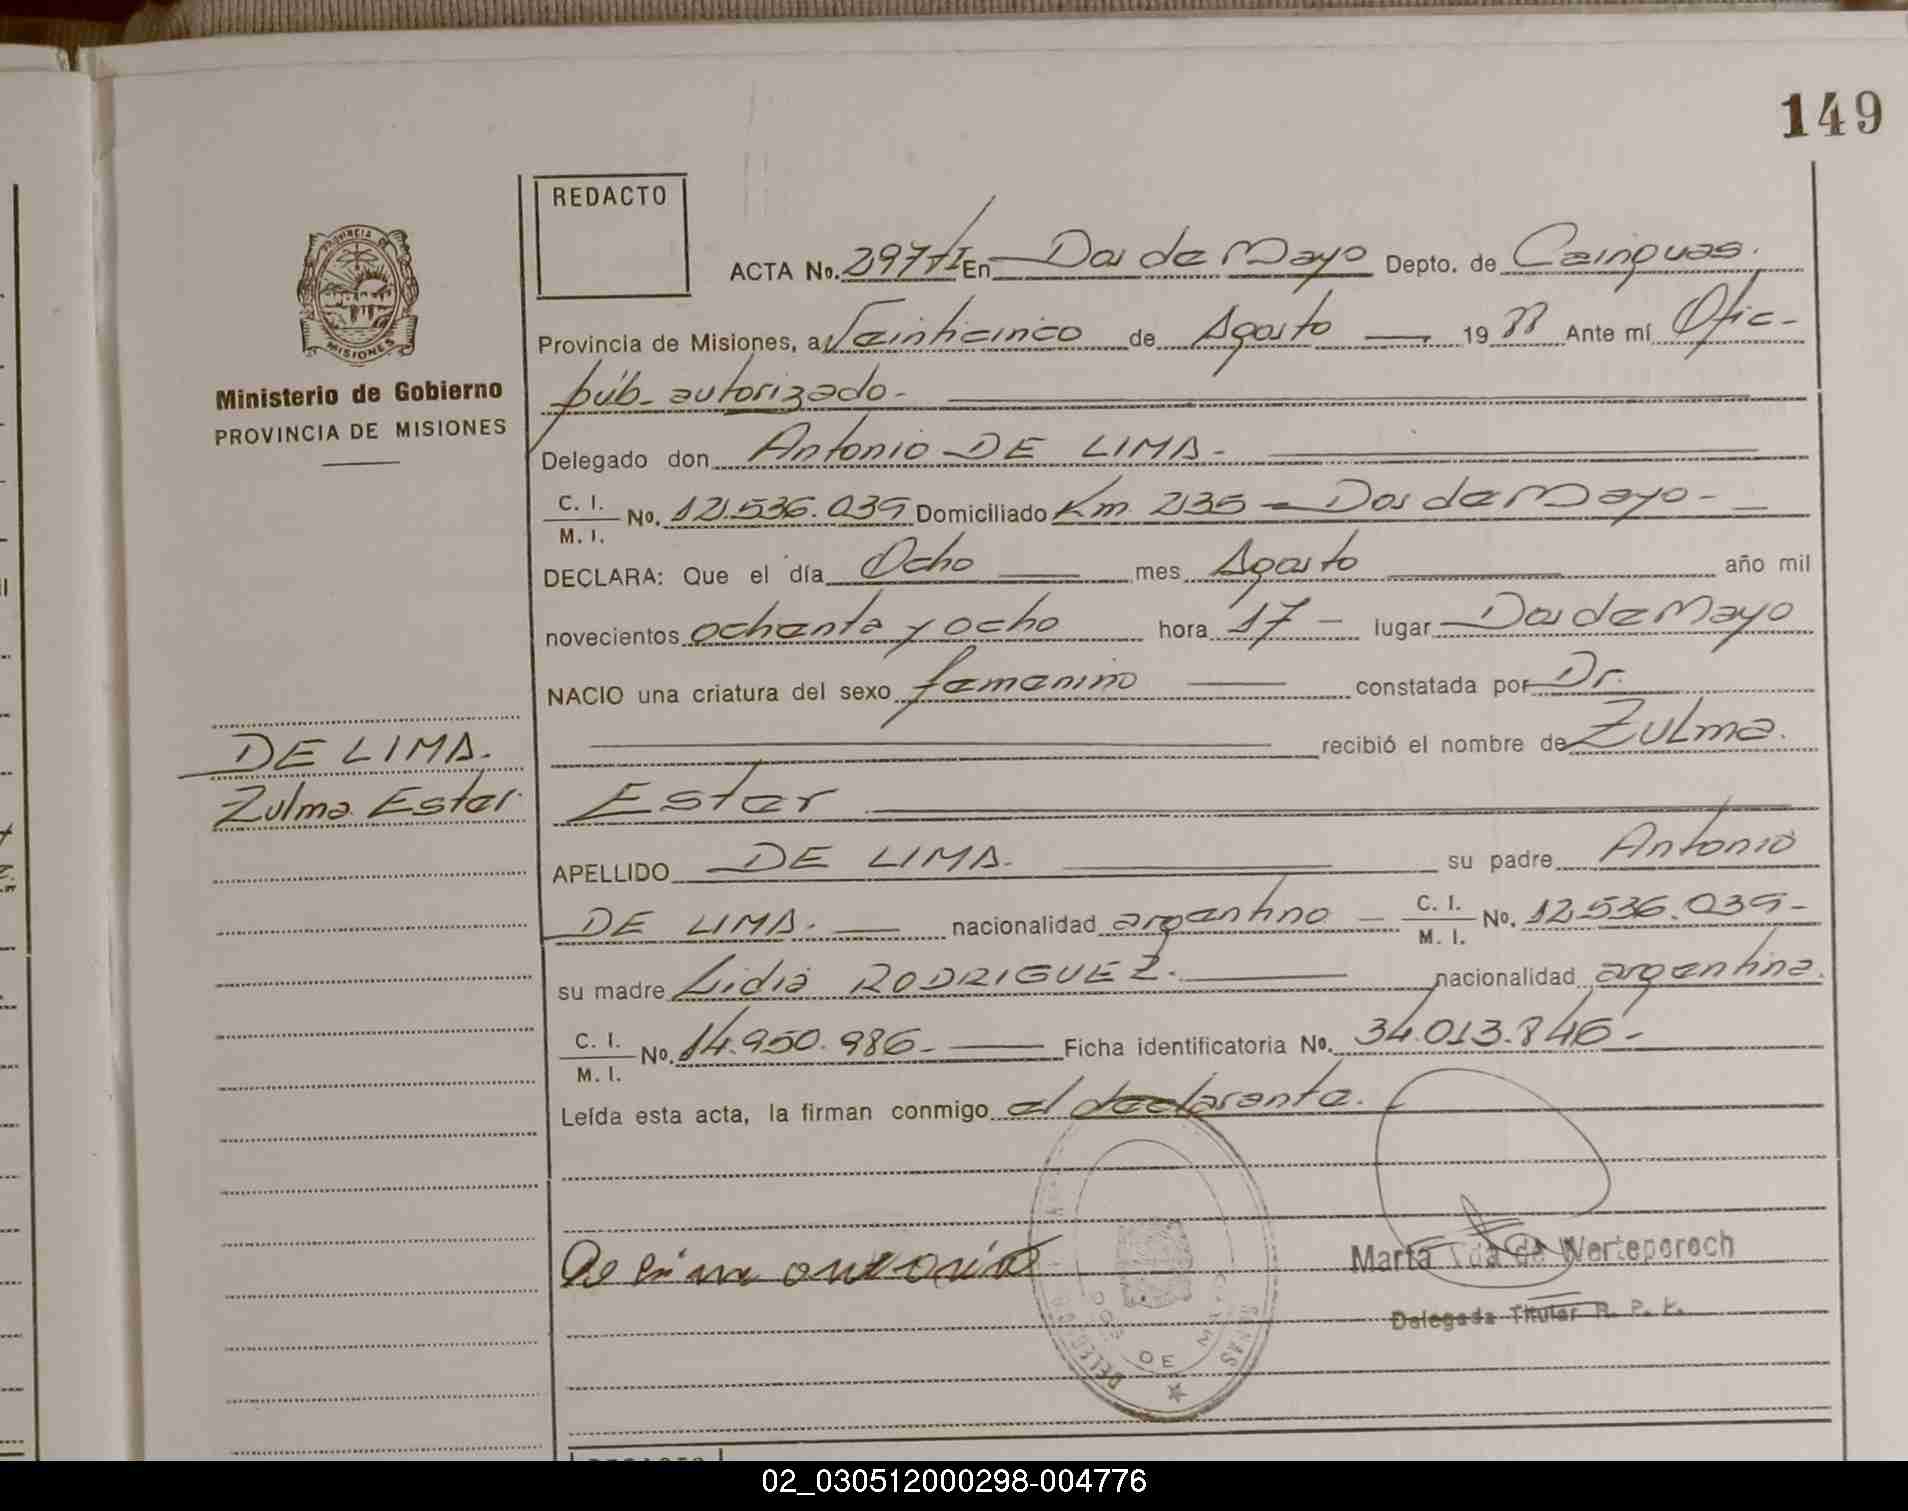 149
REDACTO
PROVINCIA DE
MISIONES
Ministerio de Gobierno
PROVINCIA DE MISIONES
ACTA No. 297 TI En Dos de Mayo Depto. de Cainguas.
Provincia de Misiones, a Veinticinco de Agosto 1988 Ante mí Ofic-
púb- autorizado-
Delegado don Antonio DE LIMA-
C. I.
M. I. No. 12.536.039 Domiciliado Km. 235 - Dos de Mayo-
DECLARA: Que el día Ocho mes Agosto año mil
novecientos ochenta y ocho hora 17 - lugar Dos de Mayo
NACIO una criatura del sexo femenino constatada por Dr.
recibió el nombre de Zulma.
DE LIMA.
Zulma Ester
Ester
APELLIDO DE LIMA. su padre Antonio
DE LIMA. nacionalidad argentino - C. I. No. 12.536.039-
M. I.
su madre Lidia RODRIGUEZ. nacionalidad argentina.
C. I.
M. I. No. 14.950.986- Ficha identificatoria No. 34.013.846-
Leída esta acta, la firman conmigo el declarante.
De Lima
Marta Ida de Werteperech
Delegada Titular R. P. P.
DOS DE MAYO
02_030512000298-004776